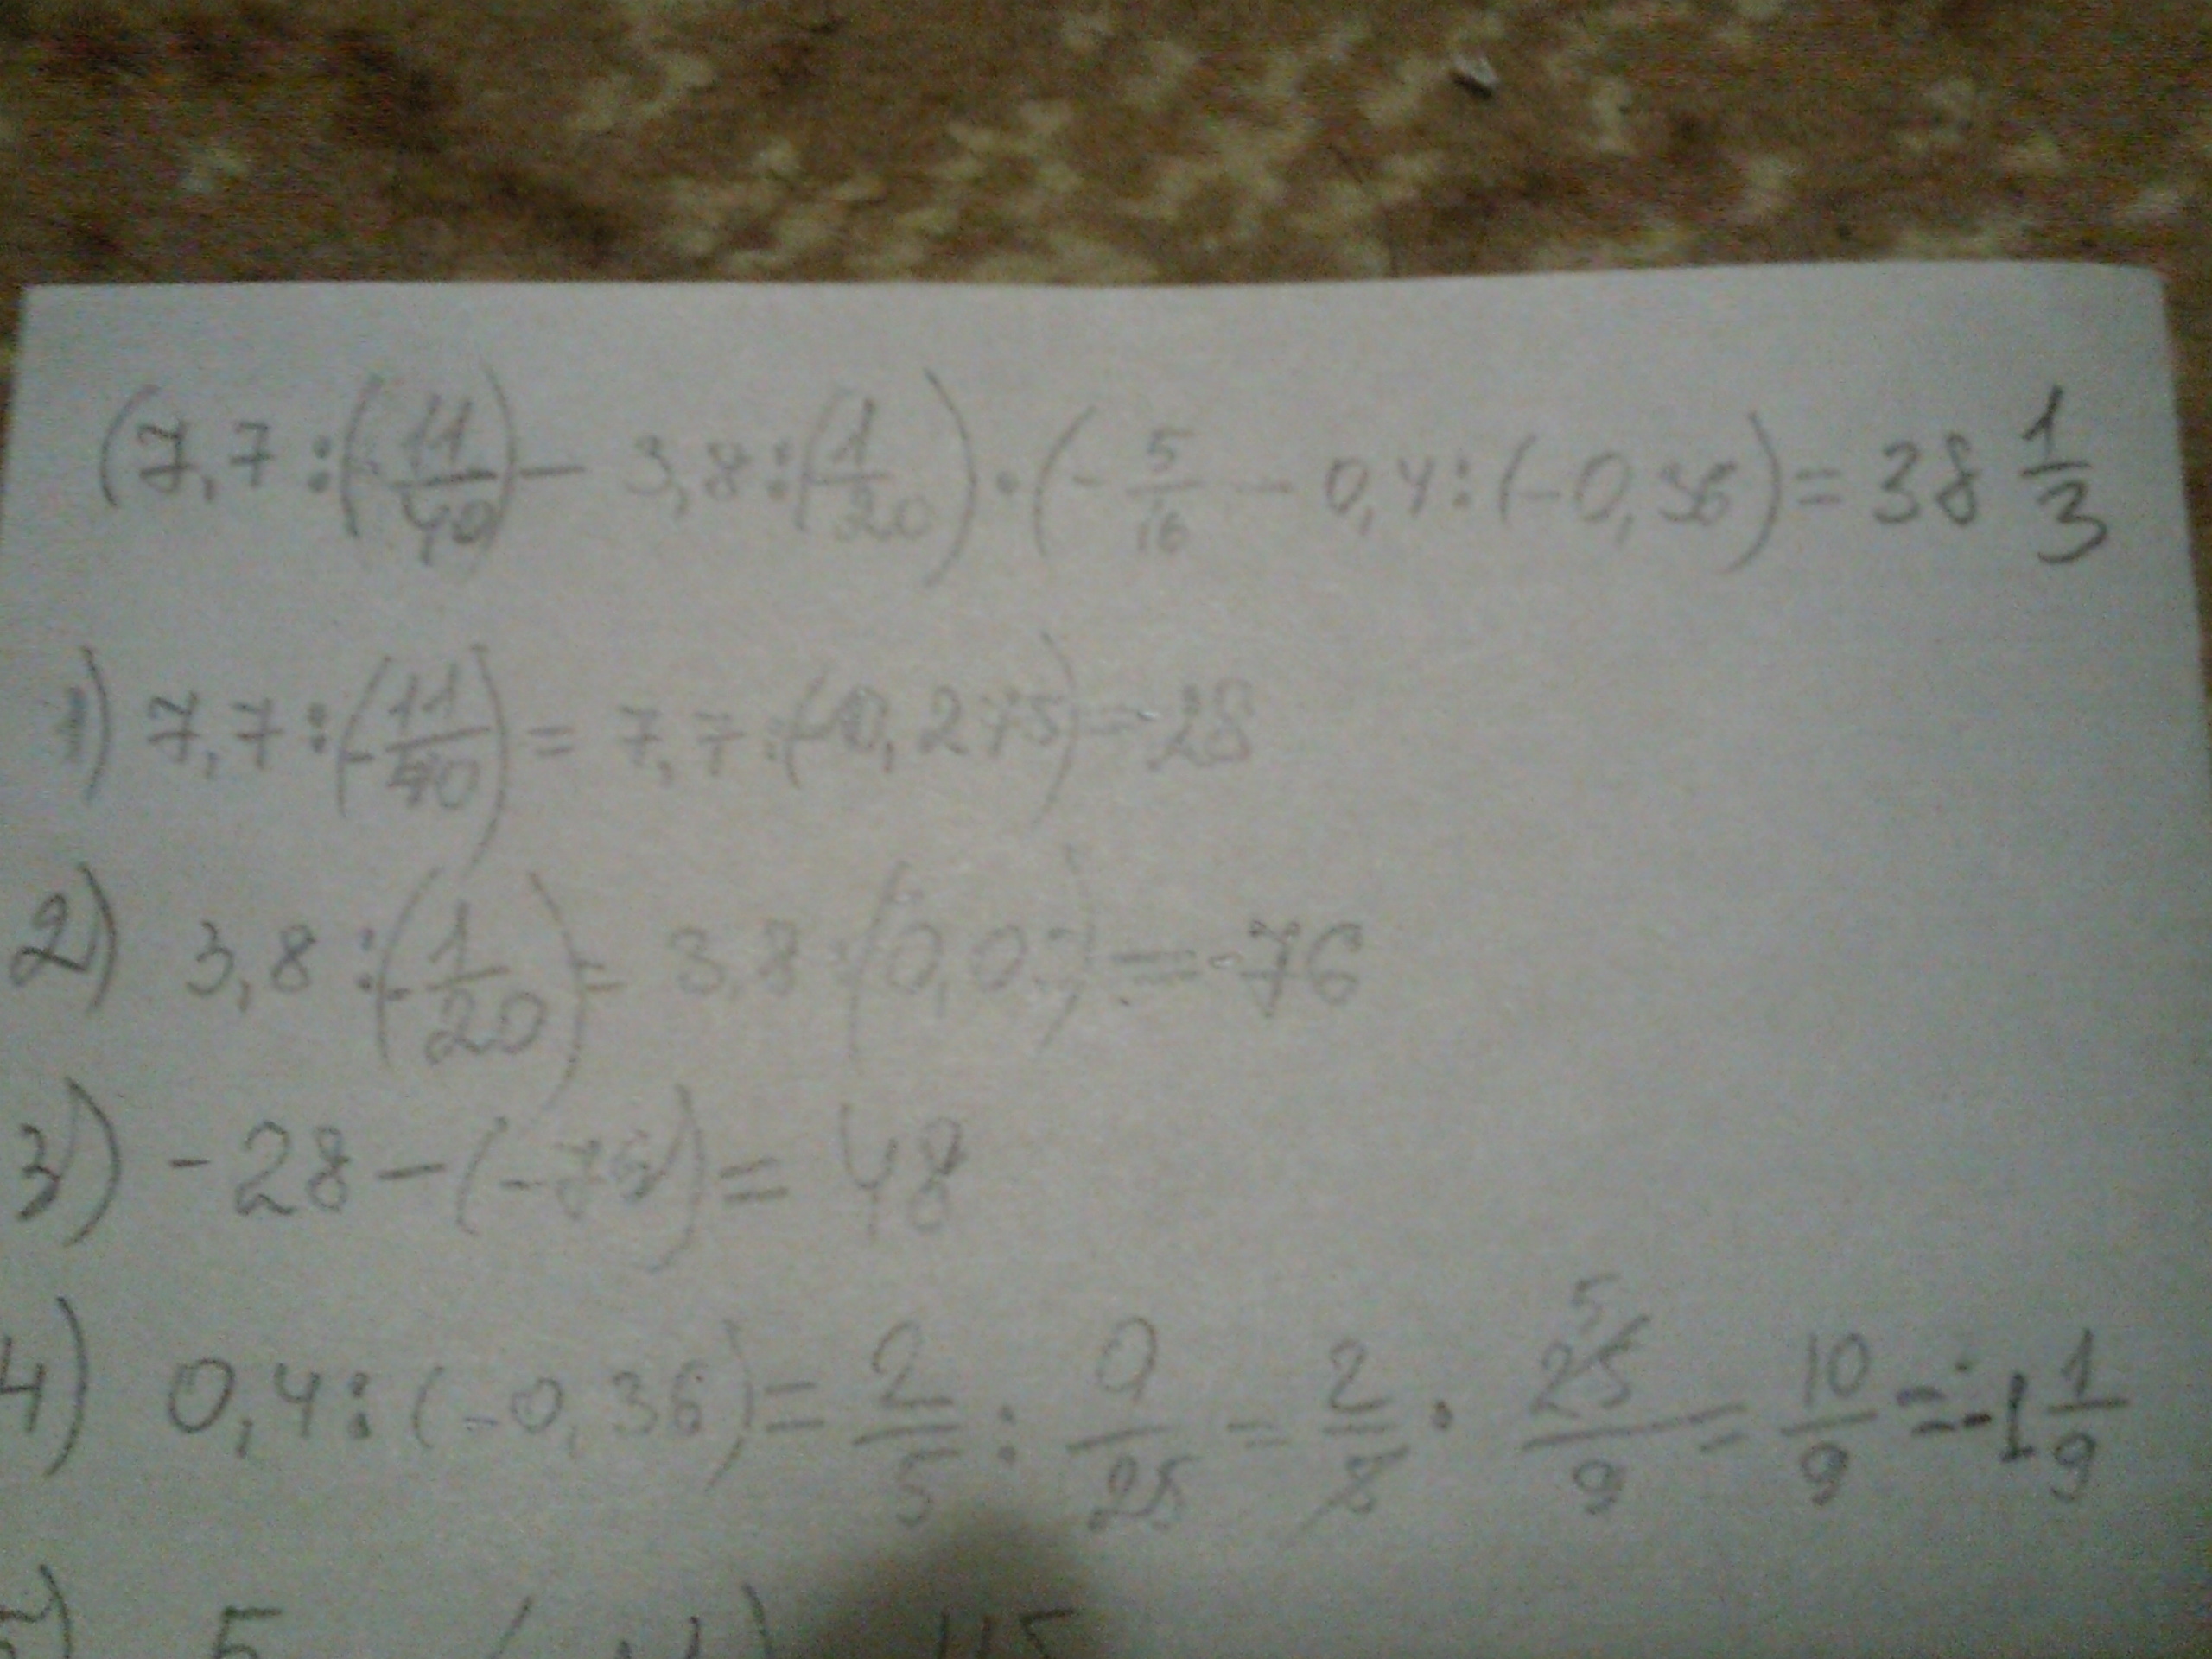 (7,7 : (-11/40) - 3,8 : (1/20)) · (-5/16 - 0,4 : (-0,36) = 38 1/3
1) 7,7 : (-11/40) = 7,7 : (-0,275) = -28
2) 3,8 : (-1/20) = 3,8 : (0,0 ) = -76
3) -28 - (-76) = 48
4) 0,4 : (-0,36) = 2/5 : 9/25 = 2/5 · 25/9 = 10/9 = -1 1/9
5) 5